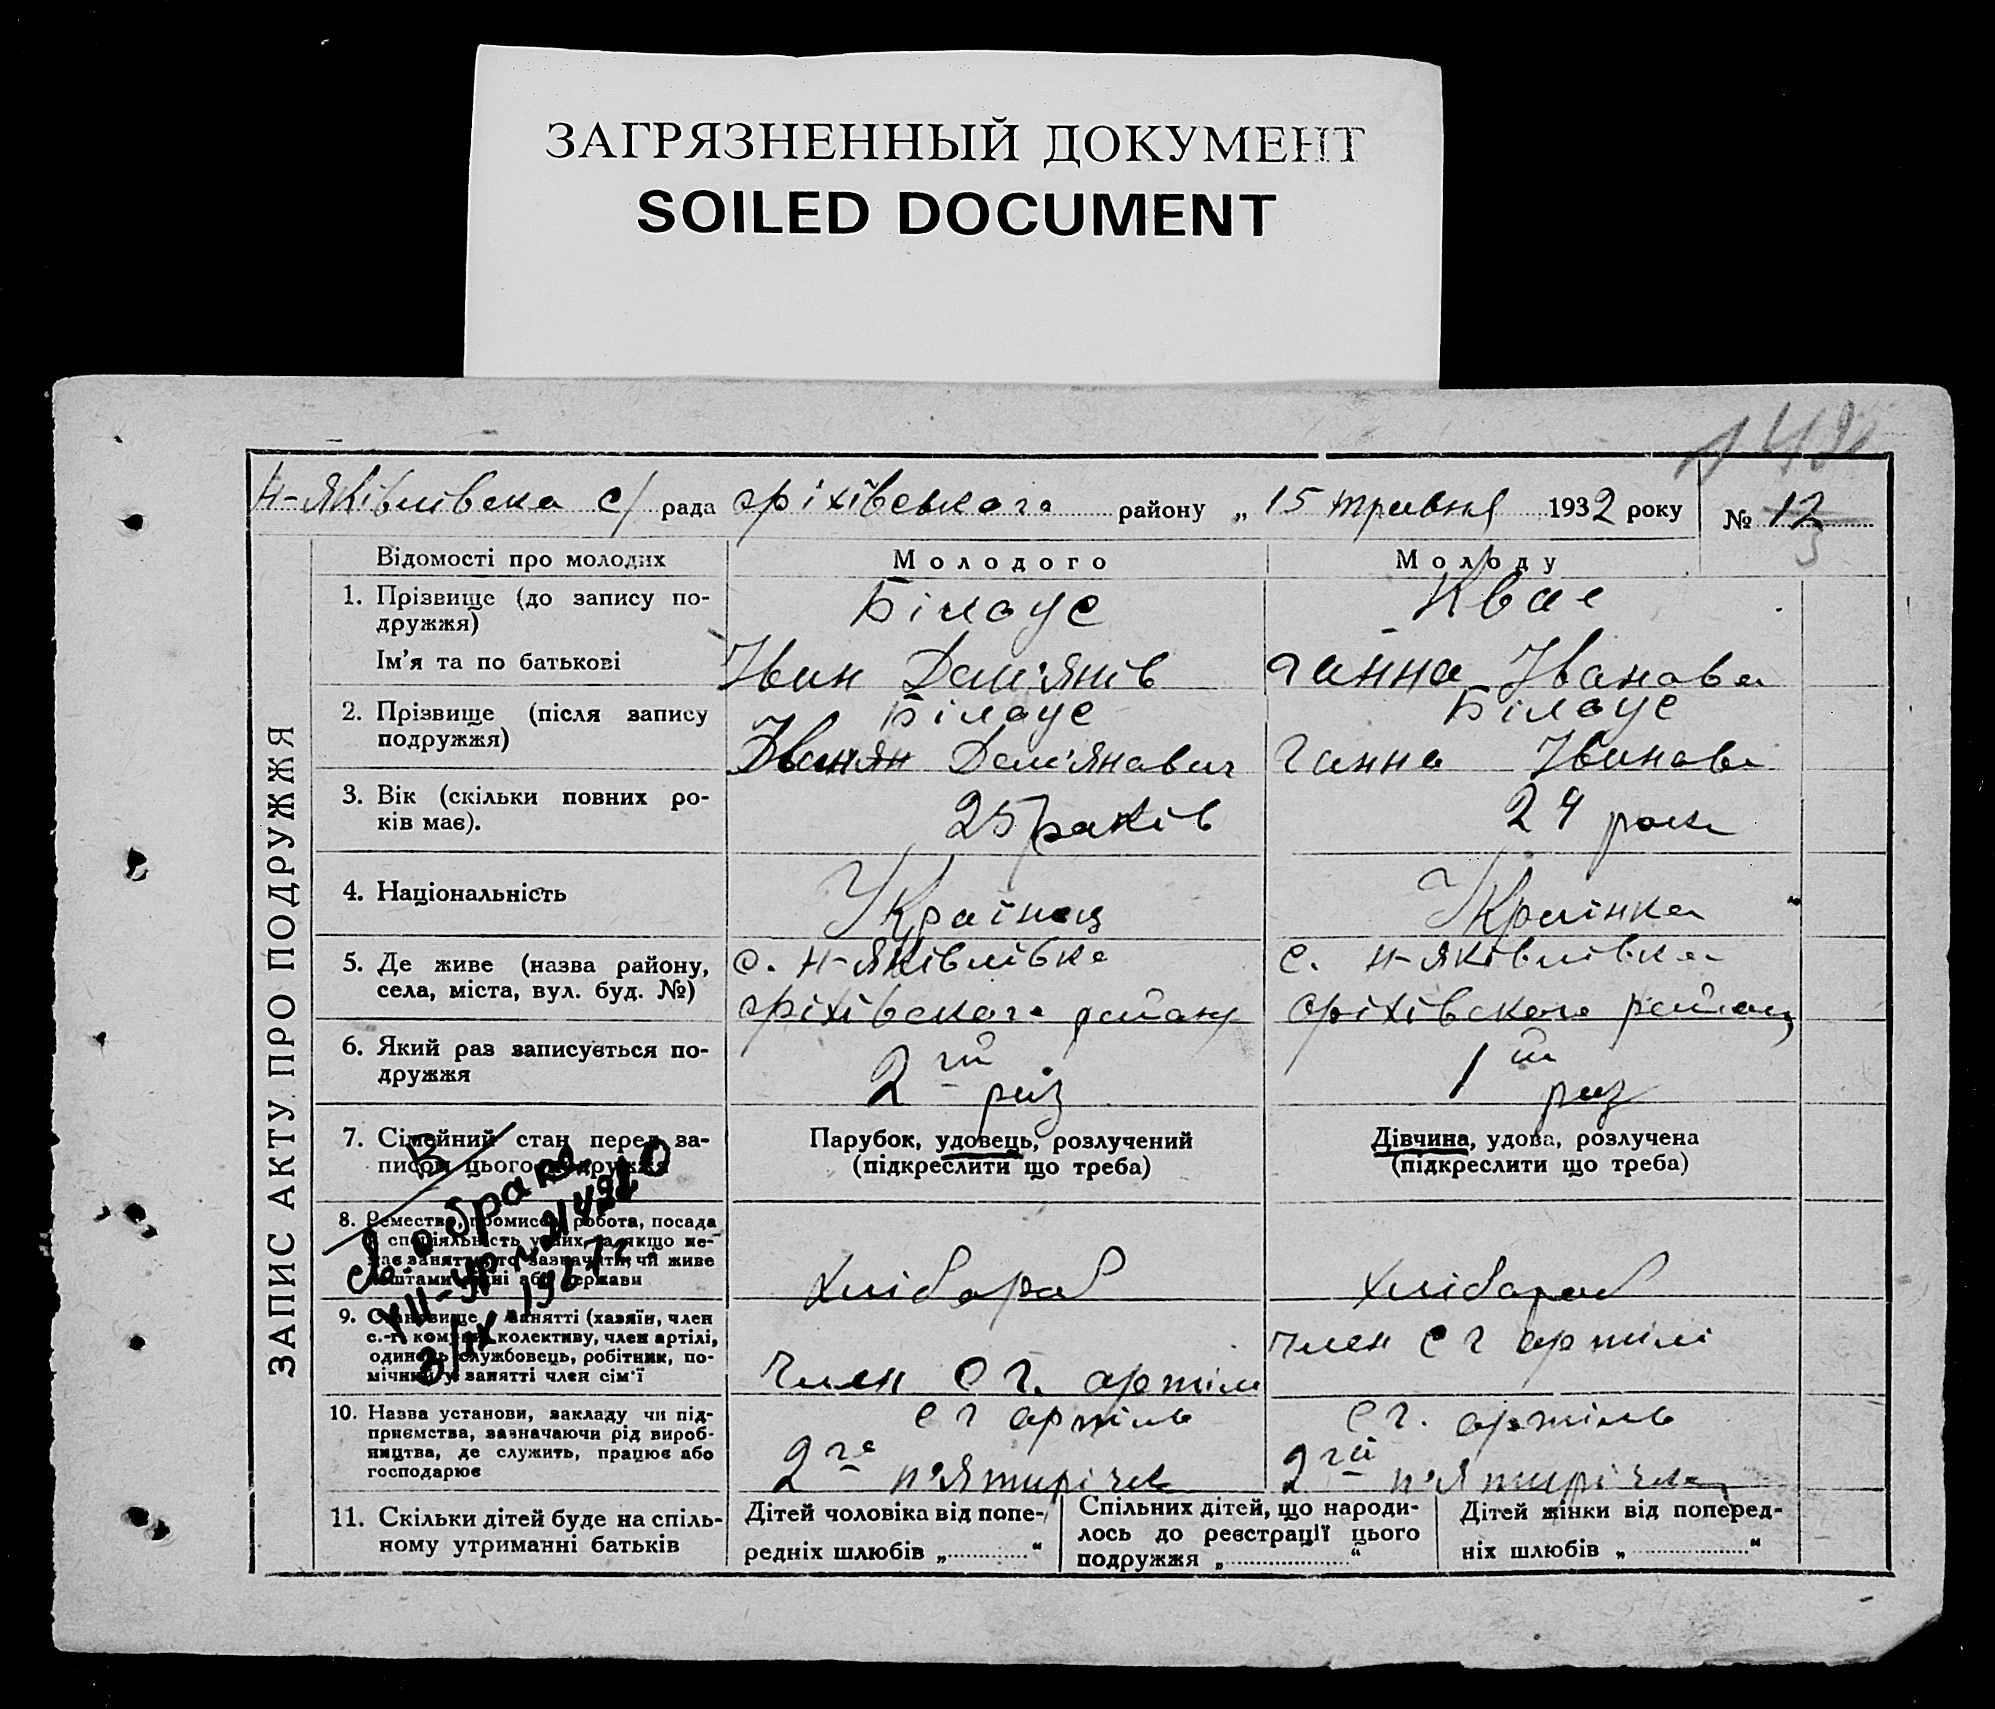 ЗАГРЯЗНЕННЫЙ ДОКУМЕНТ
SOILED DOCUMENT
Н-Яківлівска с/ рада Оріхівського району „ 15 травня 1932 року № 12
ЗАПИС АКТУ ПРО ПОДРУЖЖЯ
Відомості про молодих
Молодого
Молоду
1. Прізвище (до запису по-
дружжя)
Ім'я та по батькові
Білоус
Іван Дем'янів
Квас
Ганна Іванова
2. Прізвище (після запису
подружжя)
Білоус
Дем'янович
Білоус
Ганна Іванова
3. Вік (скільки повних ро-
ків має).
25 років
24 роки
4. Національність
Українец
Українка
5. Де живе (назва району,
села, міста, вул. буд. №)
с. Н-Яківлівка
Оріхівского району
с. Н-Яківлівка
Оріхівского району
6. Який раз записується по-
дружжя
2гий раз
1й раз
7. Сімейний стан перед за-
писом цього подружжя
Парубок, удовець, розлучений
(підкреслити що треба)
Дівчина, удова, розлучена
(підкреслити що треба)
8. Ремество, промисел, робота, посада
спеціяльність у них, а якщо не-
має заняття, то зазначити, чи живе
або держави
Хлібороб
Хлібороб
9. Становище в занятті (хазяїн, член
с.-г. комуни, колективу, член артілі,
одинець, службовець, робітник, по-
мічний у занятті член сім'ї
Член с г. артілі
Член с г артілі
10. Назва установи, закладу чи під-
приємства, зазначаючи рід вироб-
ництва, де служить, працює або
господарює
с г артіль
2га п'ятирічка
с г. артіль
2га п'ятирічка
11. Скільки дітей буде на спіль-
ному утриманні батьків
Дітей чоловіка від попе-
редніх шлюбів „ “
Спільних дітей, що народи-
лось до реєстрації цього
подружжя „ “
Дітей жінки від поперед-
ніх шлюбів „ “
В
св. о браке
3/IX 1967 г.